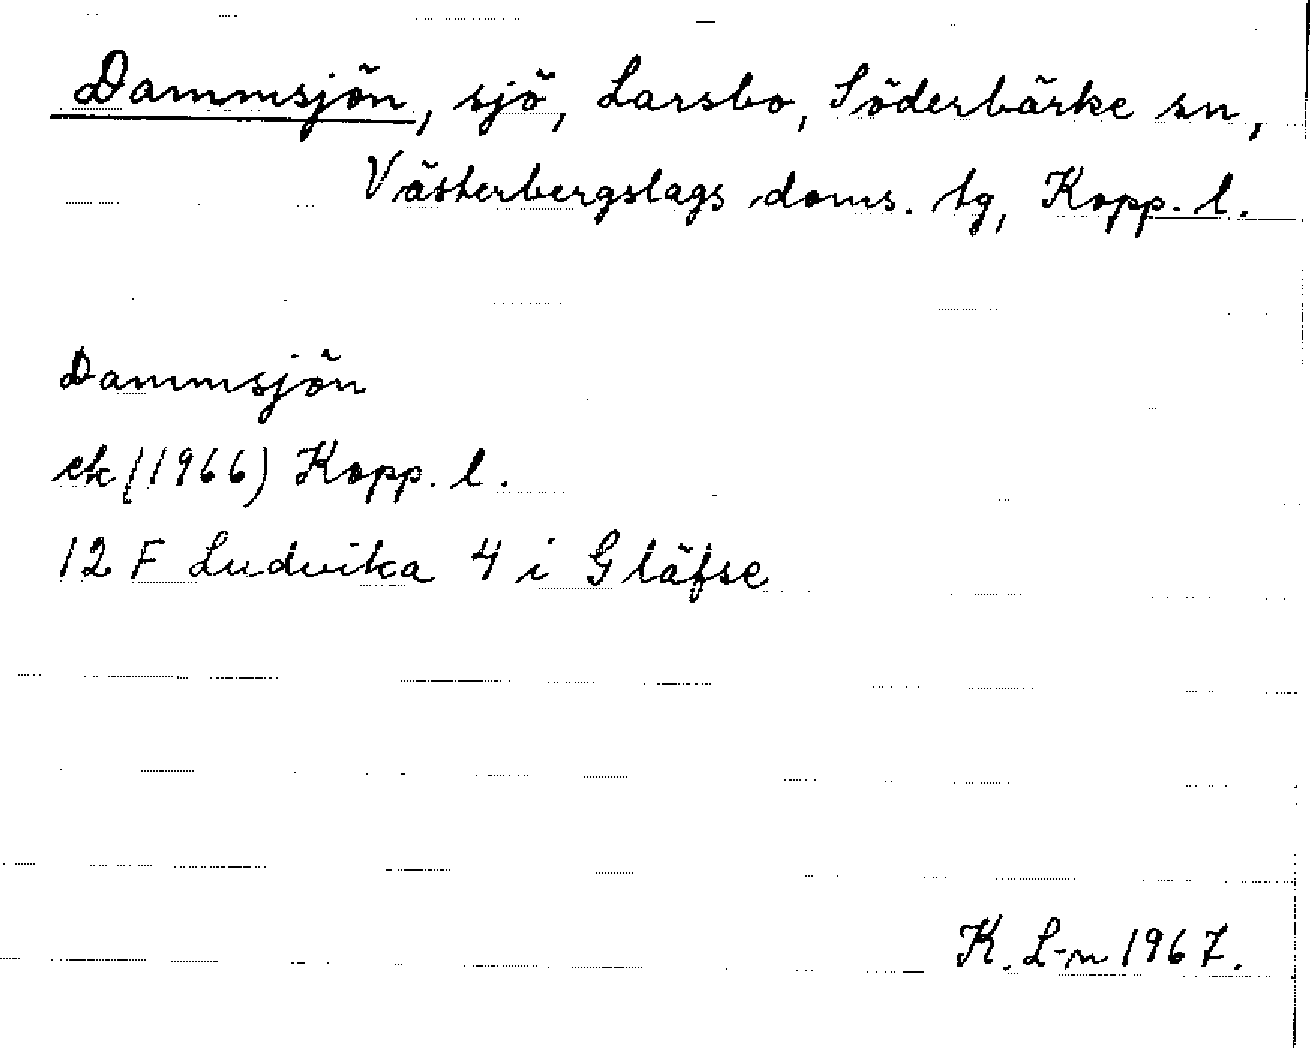 Dammsjön, sjö, Larsbo, Söderbärke sn,
Västerbergslags doms. tg, Kopp. l.
Dammsjön
ek (1966) Kopp. l.
12 F Ludvika 4 i Gläfse
K. L-n 1967.